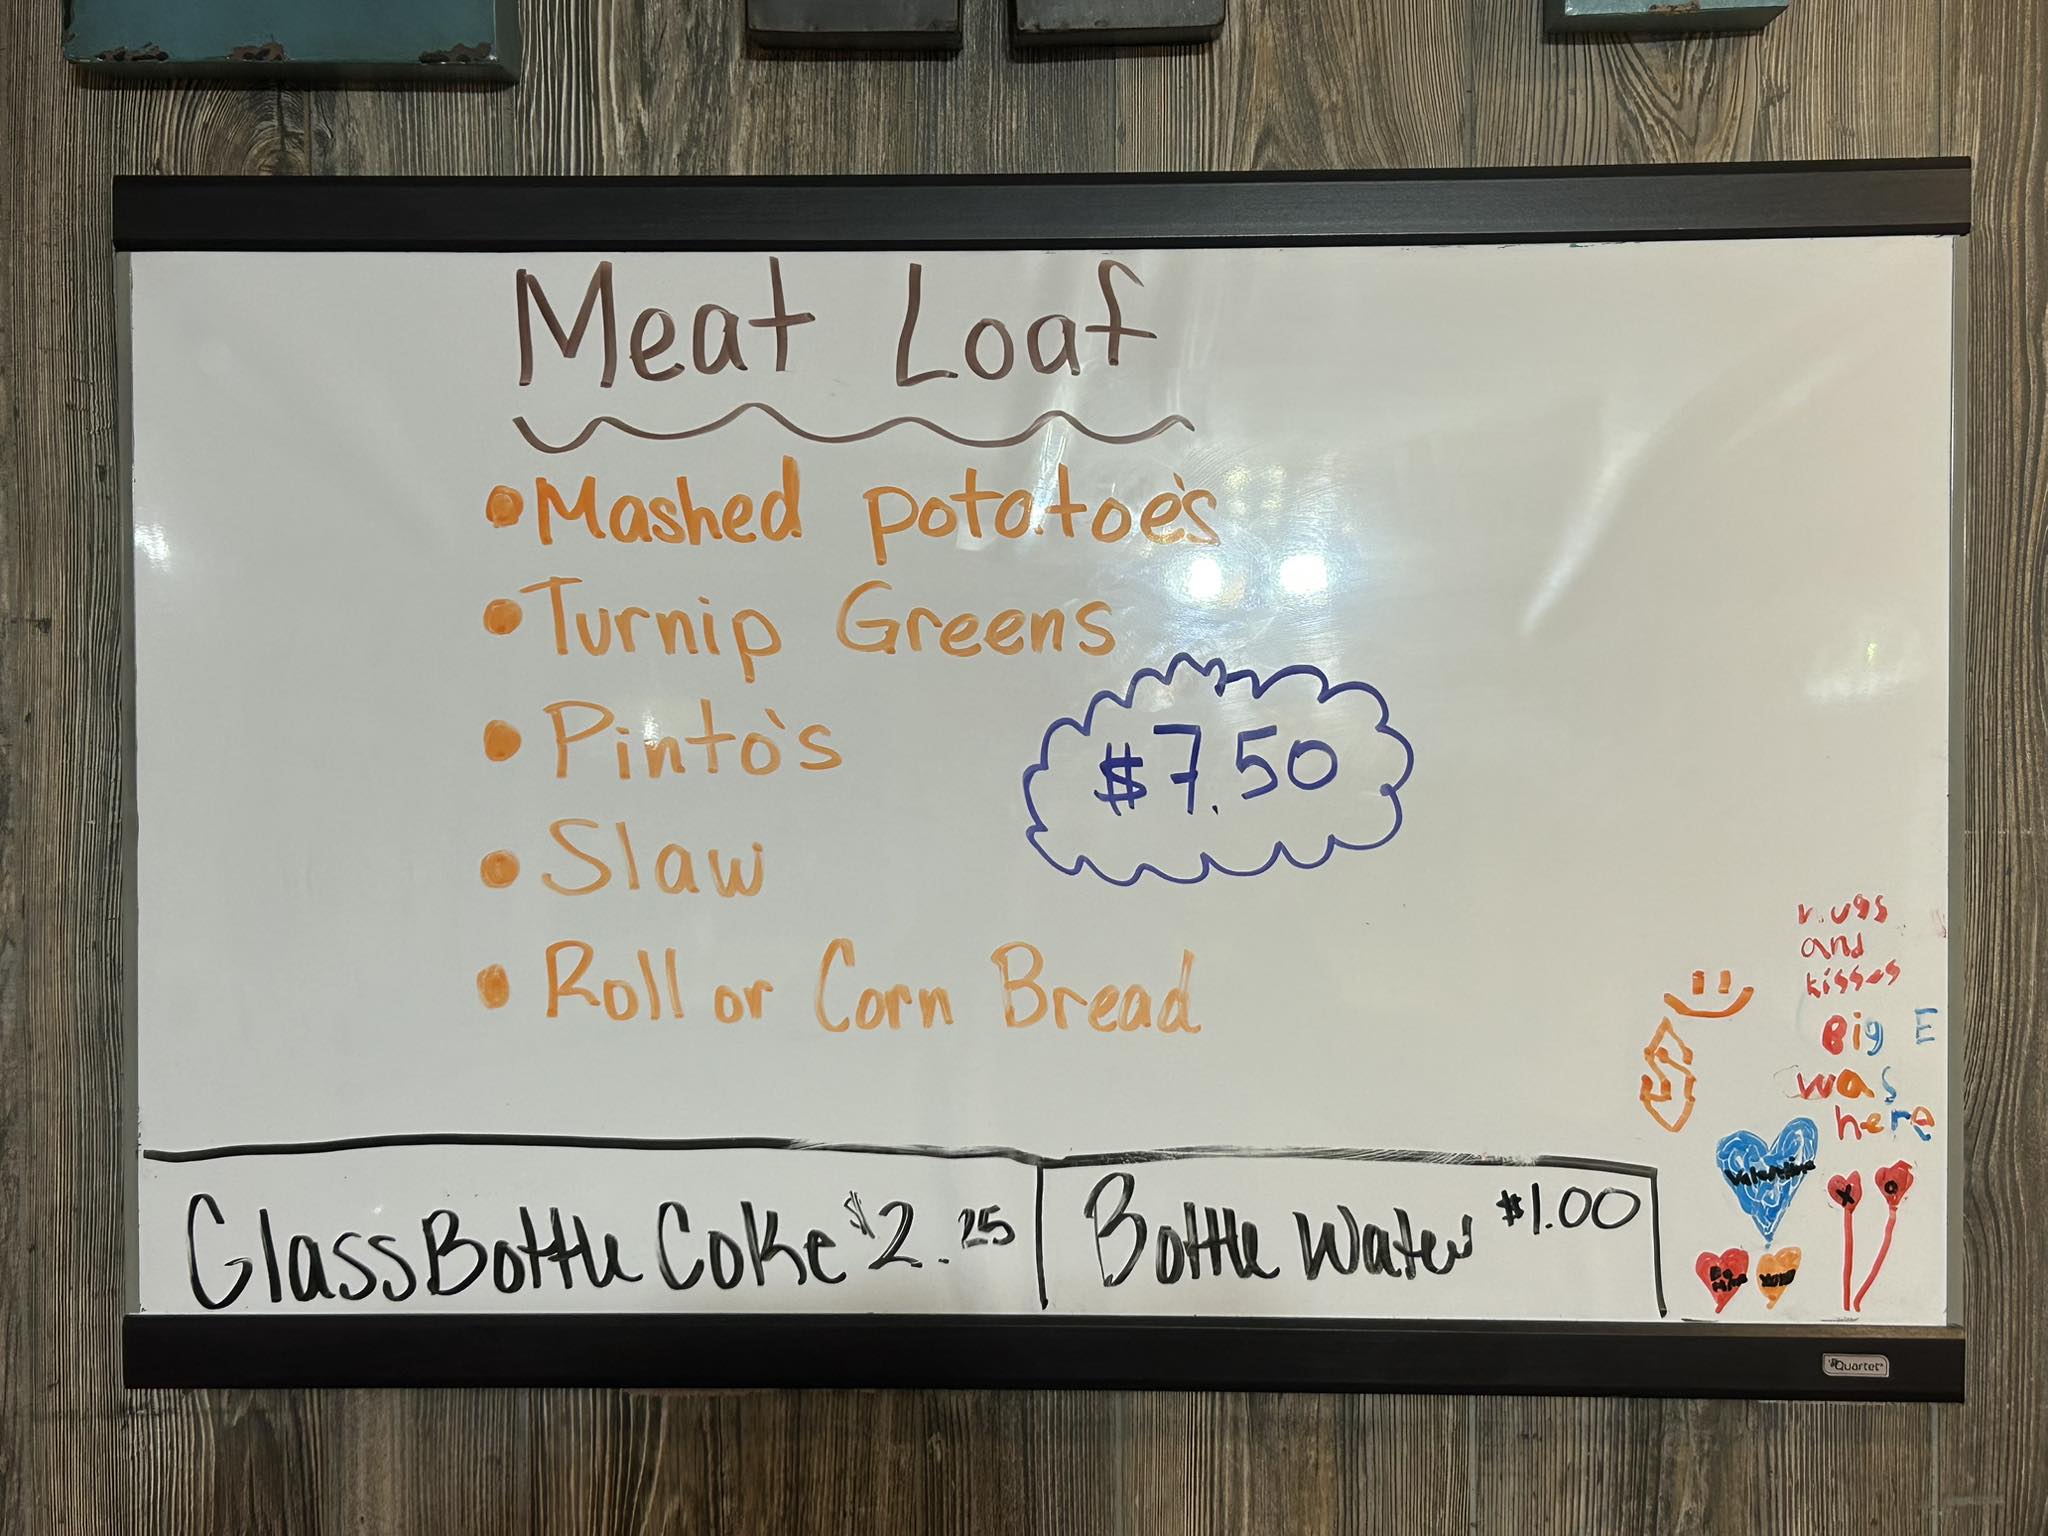 Meat Loaf
• Mashed potatoe's
• Turnip Greens
• Pinto's
• Slaw
• Roll or Corn Bread
$7.50
Glass Bottle Coke $2.25
Bottle Water $1.00
and
kisses
Big E
was
here
Valentine
X O
Be
Quartet